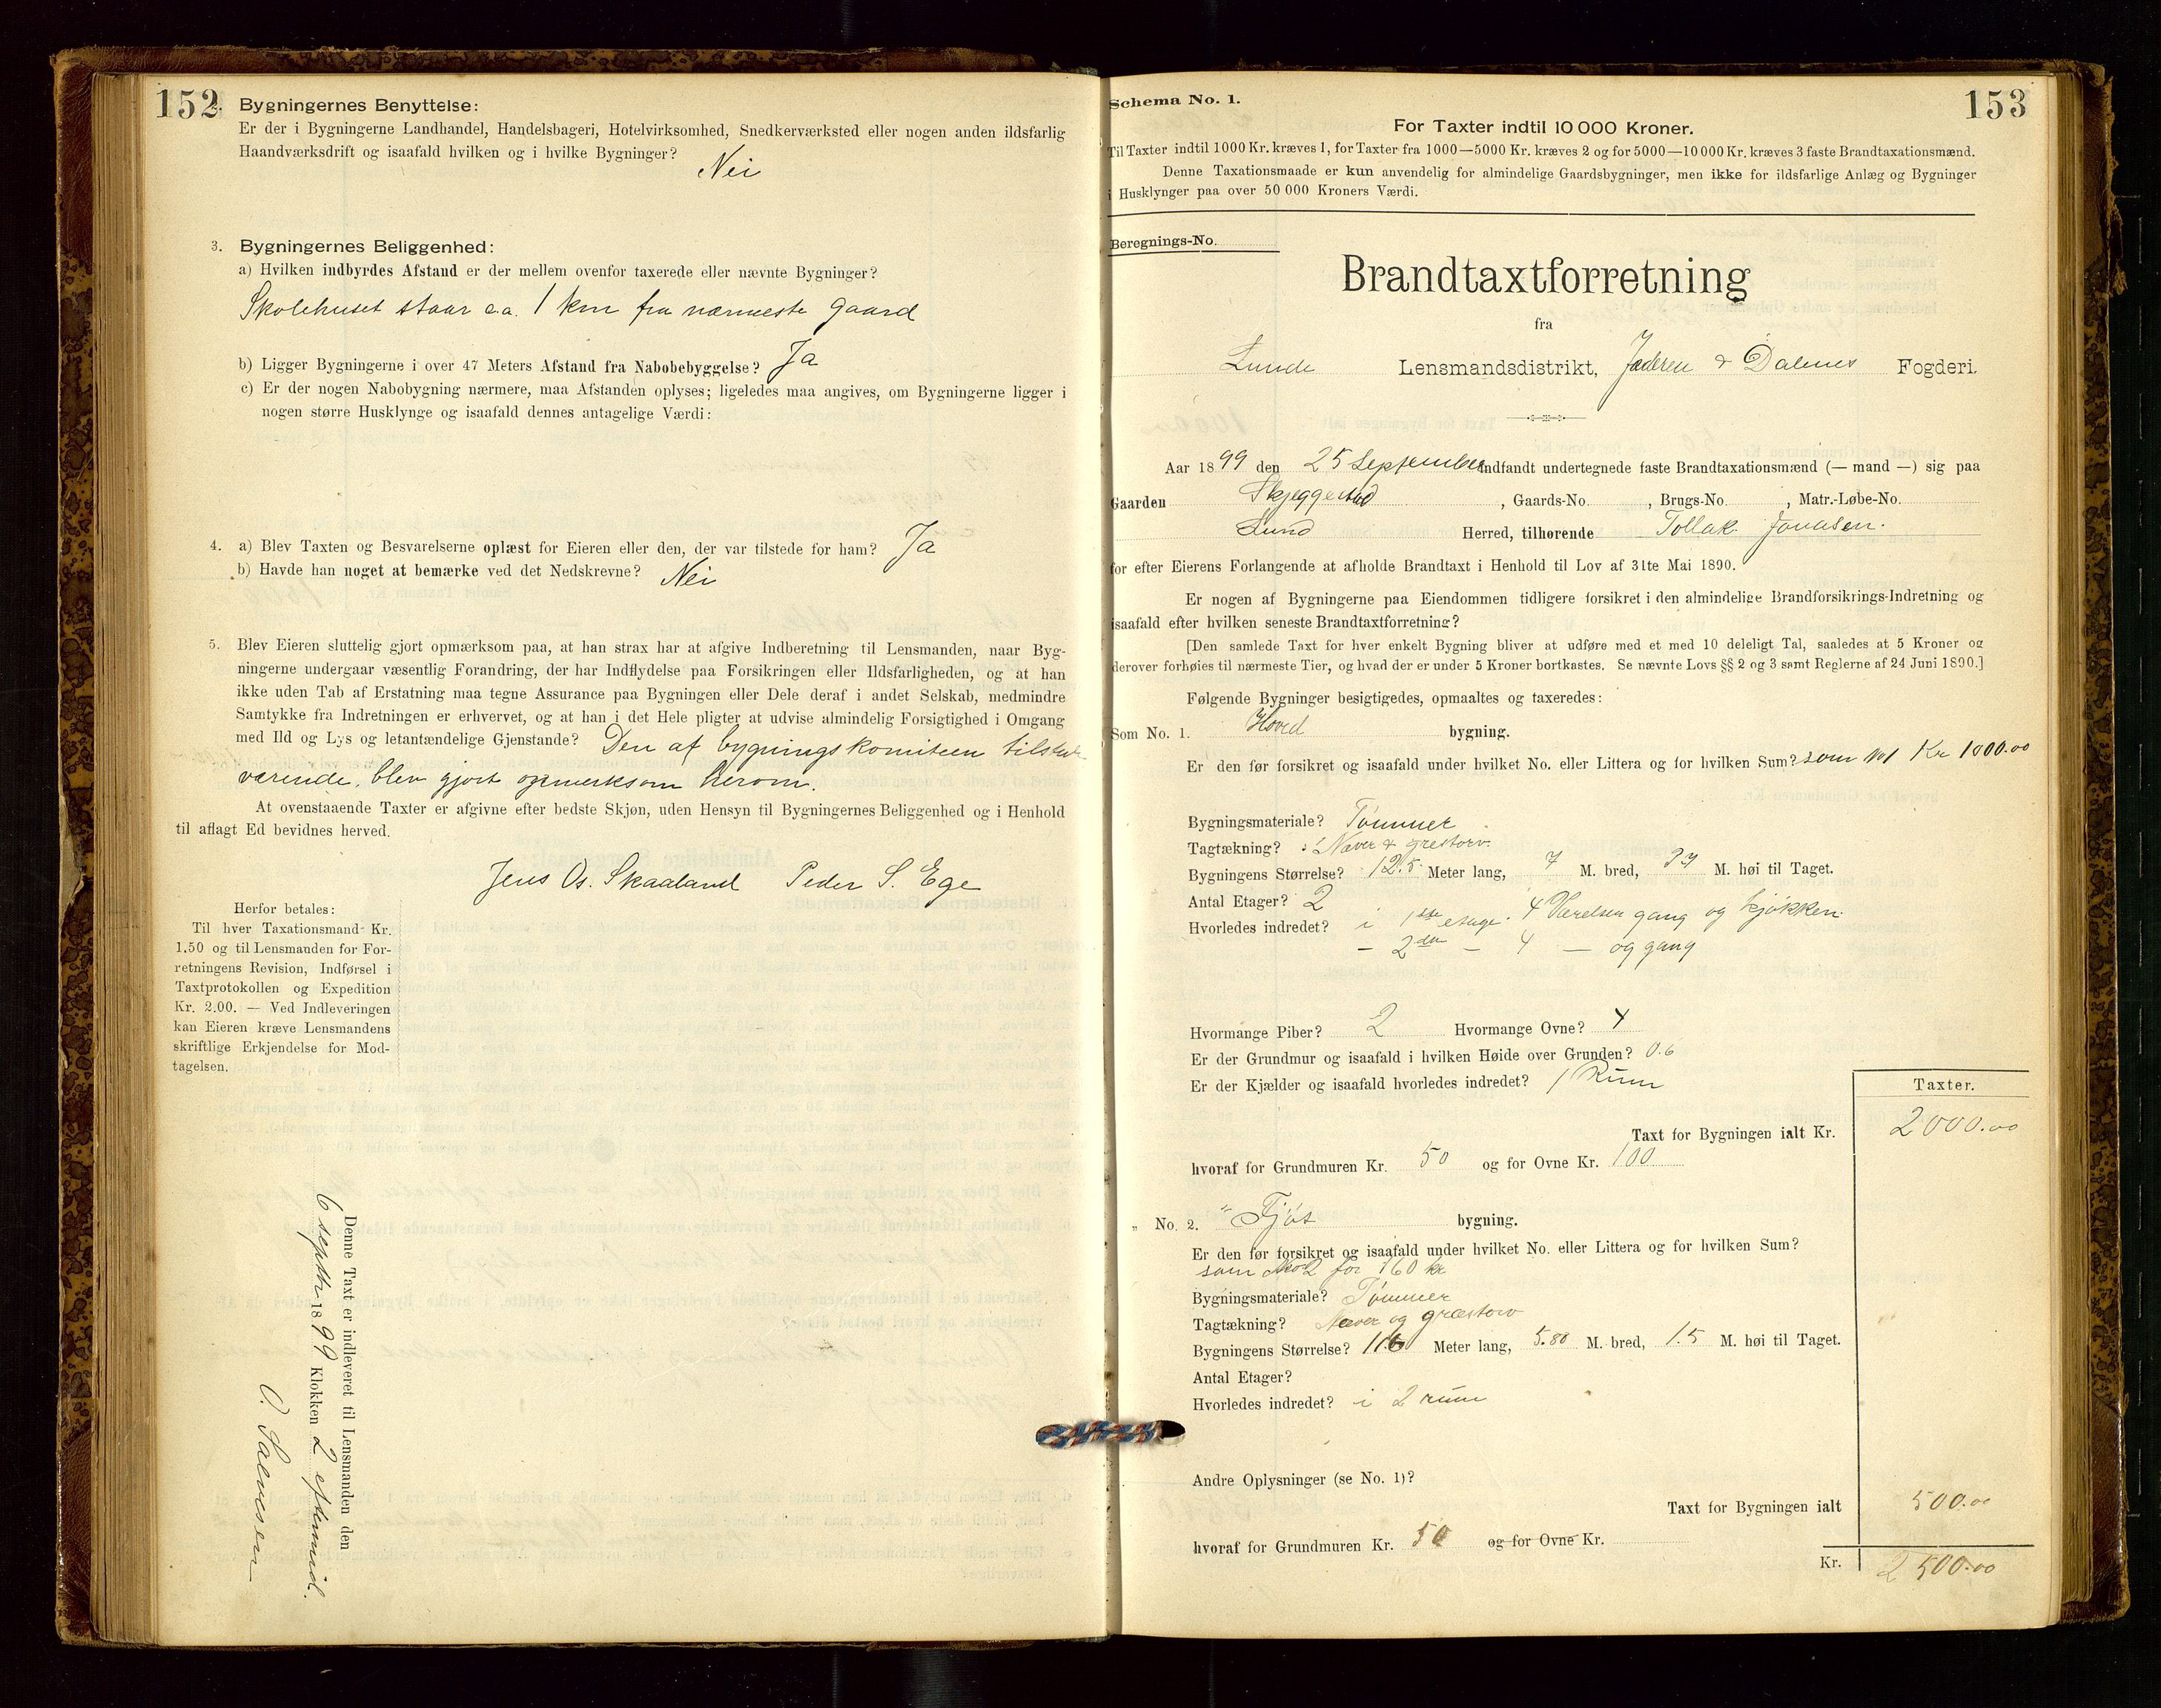 152
2. Bygningernes Benyttelse:
Er der i Bygningerne Landhandel, Handelsbageri, Hotelvirksomhed, Snedkerværksted eller nogen anden ildsfarlig
Haandværksdrift og isaafald hvilken og i hvilke Bygninger?
Nei
3. Bygningernes Beliggenhed:
a) Hvilken indbyrdes Afstand er der mellem ovenfor taxerede eller nævnte Bygninger?
Skolehuset staar ca. 1 km fra nærmeste gaard
b) Ligger Bygningerne i over 47 Meters Afstand fra Nabobebyggelse? Ja
c) Er der nogen Nabobygning nærmere, maa Afstanden oplyses; ligeledes maa angives, om Bygningerne ligger i
nogen større Husklynge og isaafald dennes antagelige Værdi:
4. a) Blev Taxten og Besvarelserne oplæst for Eieren eller den, der var tilstede for ham? Ja
b) Havde han noget at bemærke ved det Nedskrevne? Nei
5. Blev Eieren sluttelig gjort opmærksom paa, at han strax har at afgive Indberetning til Lensmanden, naar Byg-
ningerne undergaar væsentlig Forandring, der har Indflydelse paa Forsikringen eller Ildsfarligheden, og at han
ikke uden Tab af Erstatning maa tegne Assurance paa Bygningen eller Dele deraf i andet Selskab, medmindre
Samtykke fra Indretningen er erhvervet, og at han i det Hele pligter at udvise almindelig Forsigtighed i Omgang
med Ild og Lys og letantændelige Gjenstande? Den af bygningskomiteen tilstede
værende, blev gjort opmerksom herom.
At ovenstaaende Taxter er afgivne efter bedste Skjøn, uden Hensyn til Bygningernes Beliggenhed og i Henhold
til aflagt Ed bevidnes herved.
Jens Os. Skaaland Peder S. Ege
Herfor betales:
Til hver Taxationsmand Kr.
1.50 og til Lensmanden for For-
retningens Revision, Indførsel i
Taxtprotokollen og Expedition
Kr. 2.00. — Ved Indleveringen
kan Eieren kræve Lensmandens
skriftlige Erkjendelse for Mod-
tagelsen.
Denne Taxt er indleveret til Lensmanden den
6 septbr 1899 Klokken 2 eftermid.
O. Salvesen
153
Schema No. 1.
For Taxter indtil 10 000 Kroner.
Til Taxter indtil 1000 Kr. kræves 1, for Taxter fra 1000—5000 Kr. kræves 2 og for 5000—10 000 Kr. kræves 3 faste Brandtaxationsmænd.
Denne Taxationsmaade er kun anvendelig for almindelige Gaardsbygninger, men ikke for ildsfarlige Anlæg og Bygninger
i Husklynger paa over 50 000 Kroners Værdi.
Beregnings-No.
Brandtaxtforretning
fra
Lunde Lensmandsdistrikt, Jæderen & Dalenes Fogderi.
Aar 1899 den 25 September indfandt undertegnede faste Brandtaxationsmænd (— mand —) sig paa
Gaarden Skjeggestad, Gaards-No. , Brugs-No. , Matr.-Løbe-No.
Lund Herred, tilhørende Tollak Jonasen.
for efter Eierens Forlangende at afholde Brandtaxt i Henhold til Lov af 31te Mai 1890.
Er nogen af Bygningerne paa Eiendommen tidligere forsikret i den almindelige Brandforsikrings-Indretning og
isaafald efter hvilken seneste Brandtaxtforretning?
[Den samlede Taxt for hver enkelt Bygning bliver at udføre med et med 10 deleligt Tal, saaledes at 5 Kroner og
derover forhøies til nærmeste Tier, og hvad der er under 5 Kroner bortkastes. Se nævnte Lovs §§ 2 og 3 samt Reglerne af 24 Juni 1890.]
Følgende Bygninger besigtigedes, opmaaltes og taxeredes:
Som No. 1. Hoved bygning.
Er den før forsikret og isaafald under hvilket No. eller Littera og for hvilken Sum? som No 1 Kr 1000.00
Bygningsmateriale? Tømmer
Tagtækning? Næver & græstorv.
Bygningens Størrelse? 12.5 Meter lang, 7 M. bred, M. høi til Taget.
Antal Etager? 2
Hvorledes indredet? i 1ste etage. 4 Værelser gang og kjøkken.
— 2den — 4 — og gang
Hvormange Piber? 2 Hvormange Ovne? 4
Er der Grundmur og isaafald i hvilken Høide over Grunden? 0.6
Er der Kjælder og isaafald hvorledes indredet? 1 Rum
Taxter.
Taxt for Bygningen ialt Kr. 2000.00
hvoraf for Grundmuren Kr. 50 og for Ovne Kr. 100
„ No. 2. Fjøs bygning.
Er den før forsikret og isaafald under hvilket No. eller Littera og for hvilken Sum?
som No 2 for 160 kr
Bygningsmateriale? Tømmer
Tagtækning? Næver og græstorv
Bygningens Størrelse? 11.6 Meter lang, 5.80 M. bred, 1.5 M. høi til Taget.
Antal Etager?
Hvorledes indredet? i 2 rum
Andre Oplysninger (se No. 1)?
Taxt for Bygningen ialt 500.00
hvoraf for Grundmuren Kr. 50 og for Ovne Kr.
Kr. 2500.00